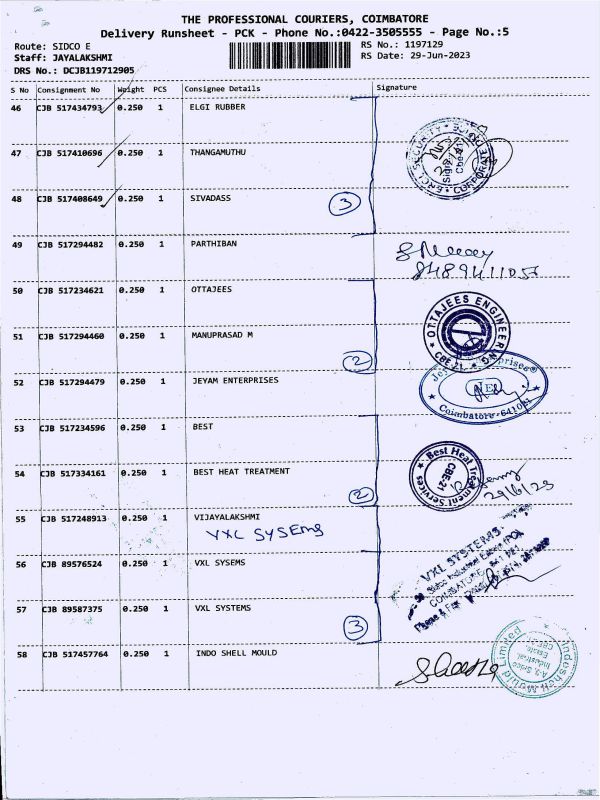 THE PROFESSIONAL COURIERS, COIMBATORE
Delivery Runsheet - PCK - Phone No.:0422-3505555 - Page No.:5
Route: SIDCO E
RS No.: 1197129
Staff: JAYALAKSHMI
RS Date: 29-Jun-2023
DRS No.: DCJB119712905
S No Consignment No Weight PCS Consignee Details Signature
46 CJB 517434793 0.250 1 ELGI RUBBER
47 CJB 517410696 0.250 1 THANGAMUTHU
48 CJB 517408649 0.250 1 SIVADASS
3
49 CJB 517294482 0.250 1 PARTHIBAN
50 CJB 517234621 0.250 1 OTTAJEES
OTTAJEES ENGINEERING
CBE-21
51 CJB 517294460 0.250 1 MANUPRASAD M
2
52 CJB 517294479 0.250 1 JEYAM ENTERPRISES
JE
Coimbatore - 641021
53 CJB 517234596 0.250 1 BEST
54 CJB 517334161 0.250 1 BEST HEAT TREATMENT
2
Best Heat Treatment Services
CBE-21
29/6/23
55 CJB 517248913 0.250 1 VIJAYALAKSHMI
VXL SYSEMS
56 CJB 89576524 0.250 1 VXL SYSEMS
VXL SYSTEMS
57 CJB 89587375 0.250 1 VXL SYSTEMS
3
58 CJB 517457764 0.250 1 INDO SHELL MOULD
Indoshell Mould Limited
A-9, Sidco
Industrial
Estate,